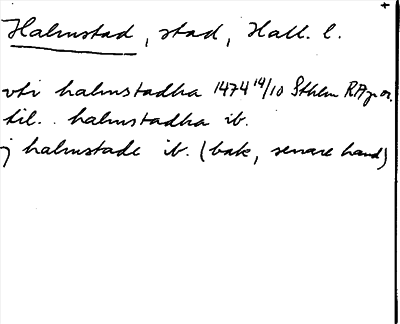 Halmstad, stad, Hall. l.
vti halmstadha 1474 14/10 Sthlm RApr or.
til. halmstadha ib.
j halmstade ib. (bak, senare hand)